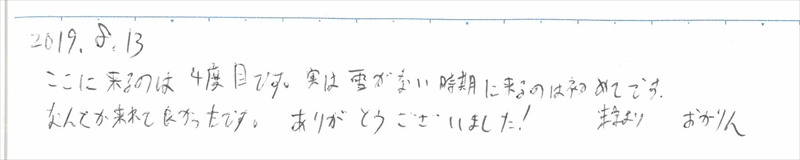 2019.8.13
ここに来るのは4度目です。実は雪がない時期に来るのは初めてです.
なんとか来れて良かったです。 ありがとうございました! おかりん